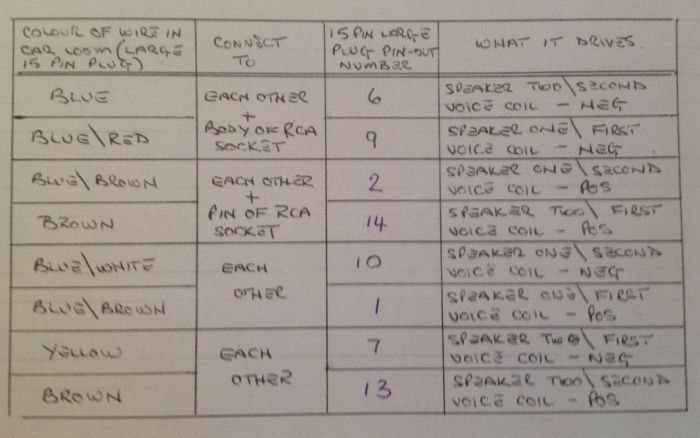 COLOUR OF WIRE IN
CAR LOOM (LARGE
15 PIN PLUG)
CONNECT
TO
15 PIN LARGE
PLUG PIN-OUT
NUMBER
WHAT IT DRIVES.
BLUE
EACH OTHER
+
BODY OF RCA
SOCKET
6
SPEAKER TWO\SECOND
VOICE COIL - NEG
BLUE\RED
9
SPEAKER ONE\FIRST
VOICE COIL - NEG
BLUE\BROWN
EACH OTHER
+
PIN OF RCA
SOCKET
2
SPEAKER ONE\SECOND
VOICE COIL - POS
BROWN
14
SPEAKER TWO\FIRST
VOICE COIL - POS
BLUE\WHITE
EACH
OTHER
10
SPEAKER ONE\SECOND
VOICE COIL - NEG
BLUE\BROWN
1
SPEAKER ONE\FIRST
VOICE COIL - POS
YELLOW
EACH
OTHER
7
SPEAKER TWO\FIRST
VOICE COIL - NEG
BROWN
13
SPEAKER TWO\SECOND
VOICE COIL - POS